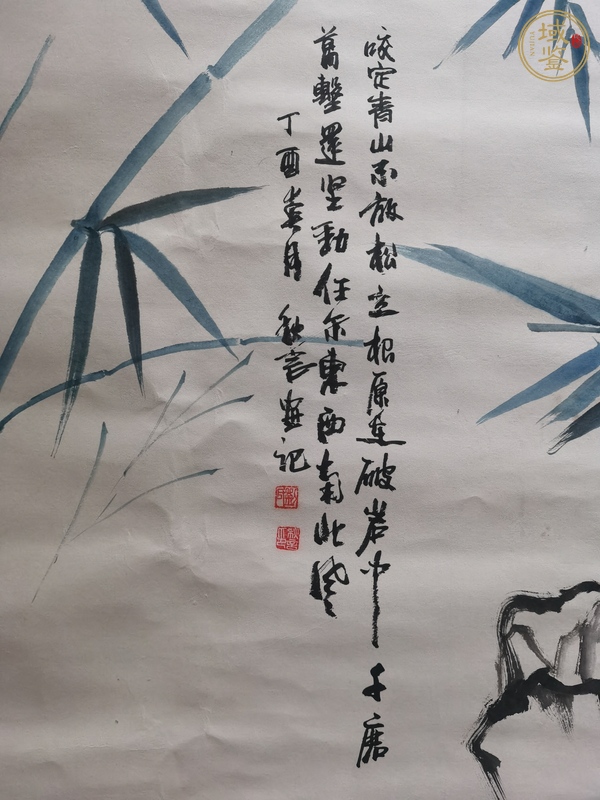 咬定青山不放松立根原在破岩中千磨
萬擊還坚勁任尔東西南北風
丁酉春月 秋言畫记
域鉴